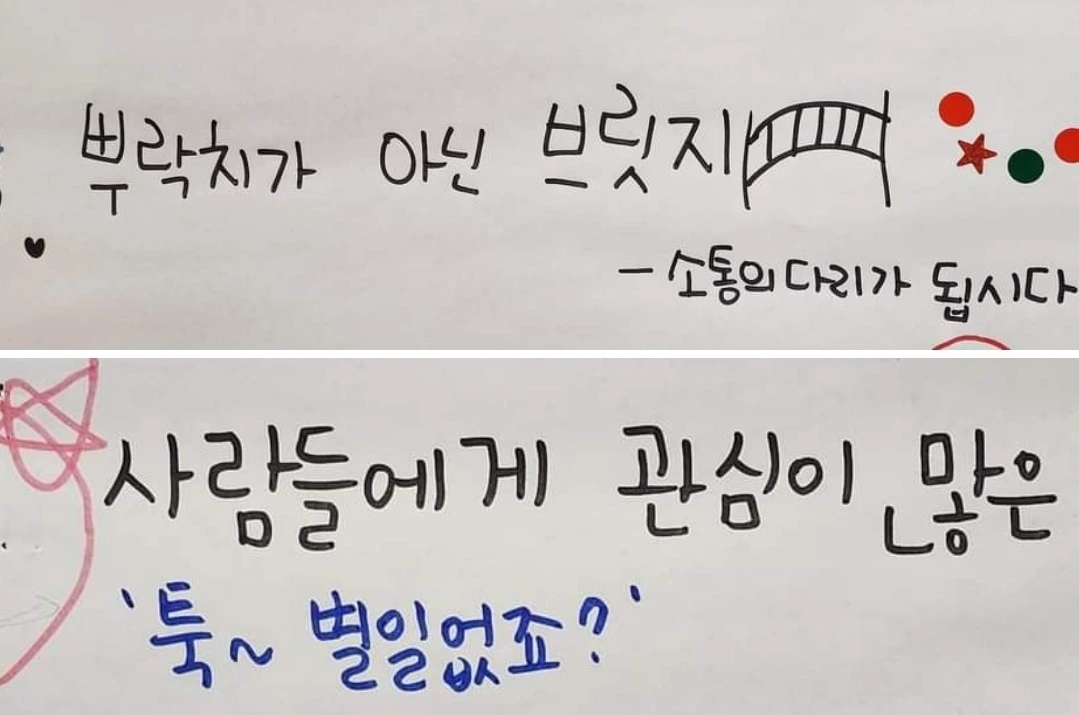 뿌락치가 아닌 브릿지
- 소통의 다리가 됩시다
사람들에게 관심이 많은
'툭~ 별일없죠?'